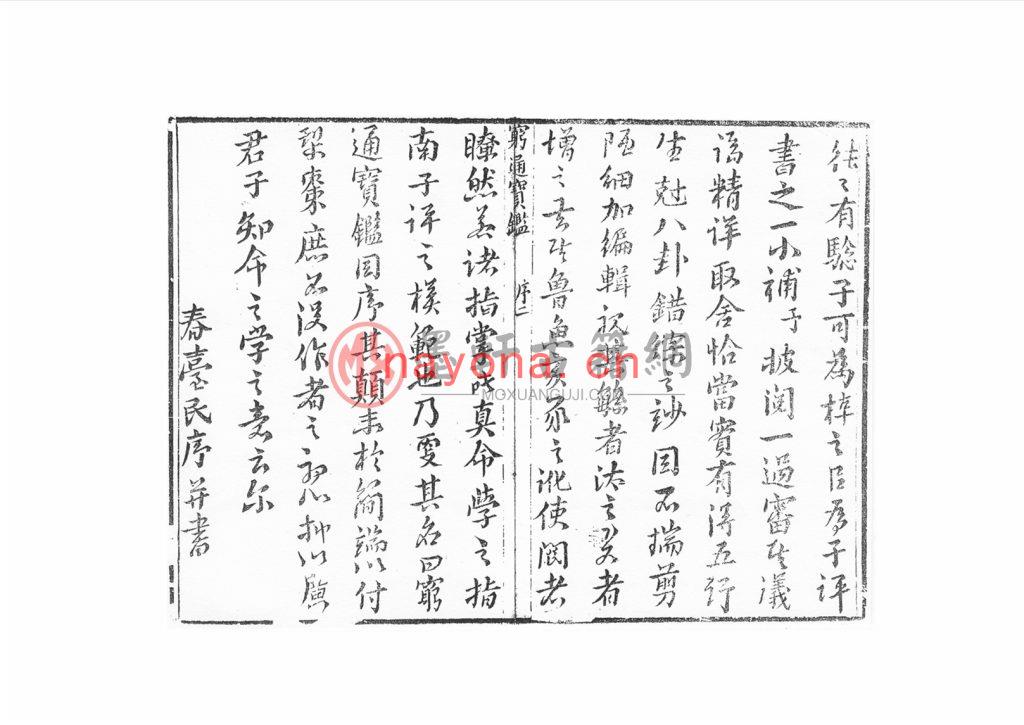 往往有驗子可為梓之臣為子評
書之一小補予披閱一過審其議
論精詳取舍恰當實有得五行
生尅八卦錯綜之玅因不揣剪
陋細加編輯視其繇者汰之
增之去其魯魚亥豕之訛使閱者
窮通寶鑑 序二
瞭然若諸指掌誠真命學之指
南子評之模範也乃更其名曰窮
通寶鑑因序其顛末於簡端以付
梨棗庶不沒作者之初心抑以廣
君子知命之学之意云尔
春臺氏序并書
墨軒古籍網
nayona.cn
MOXUANGUJI.COM